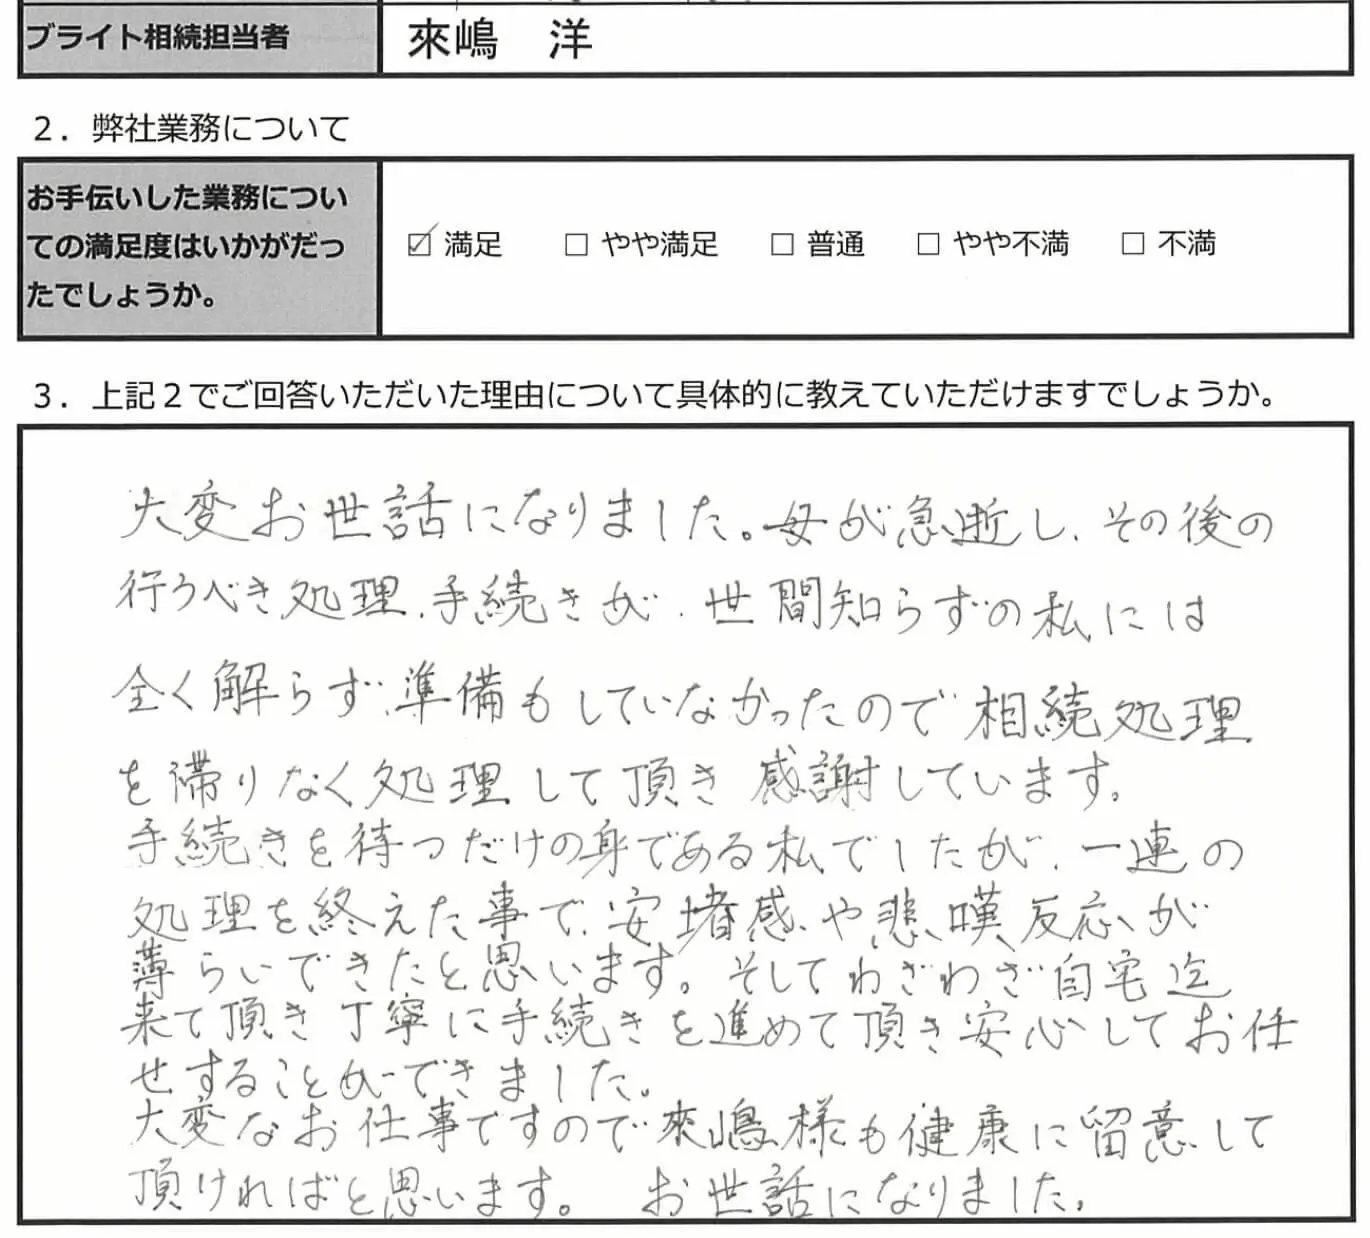 ブライト相続担当者 來嶋 洋
2．弊社業務について
お手伝いした業務につい
ての満足度はいかがだっ
たでしょうか。
☑ 満足 □ やや満足 □ 普通 □ やや不満 □ 不満
3．上記２でご回答いただいた理由について具体的に教えていただけますでしょうか。
大変お世話になりました。母が急逝し、その後の
行うべき処理、手続きが、世間知らずの私には
全く解らず、準備もしていなかったので相続処理
を滞りなく処理して頂き感謝しています。
手続きを待つだけの身である私でしたが、一連の
処理を終えた事で、安堵感や悲嘆反応が
薄らいできたと思います。そしてわざわざ自宅迄
来て頂き丁寧に手続きを進めて頂き安心してお任
せすることができました。
大変なお仕事ですので來嶋様も健康に留意して
頂ければと思います。 お世話になりました。